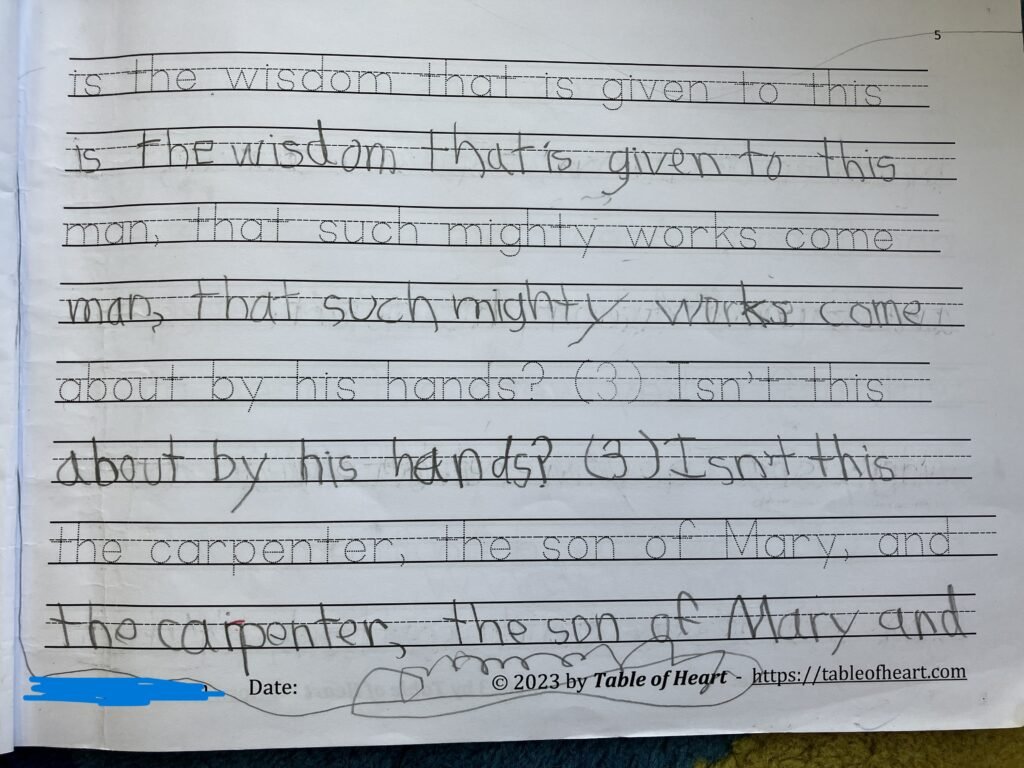 5
is the wisdom that is given to this
is the wisdom that is given to this
man, that such mighty works come
man, that such mighty works come
about by his hands? (3) Isn't this
about by his hands? (3) Isn't this
the carpenter, the son of Mary, and
the carpenter, the son of Mary and
Date: © 2023 by Table of Heart - https://tableofheart.com